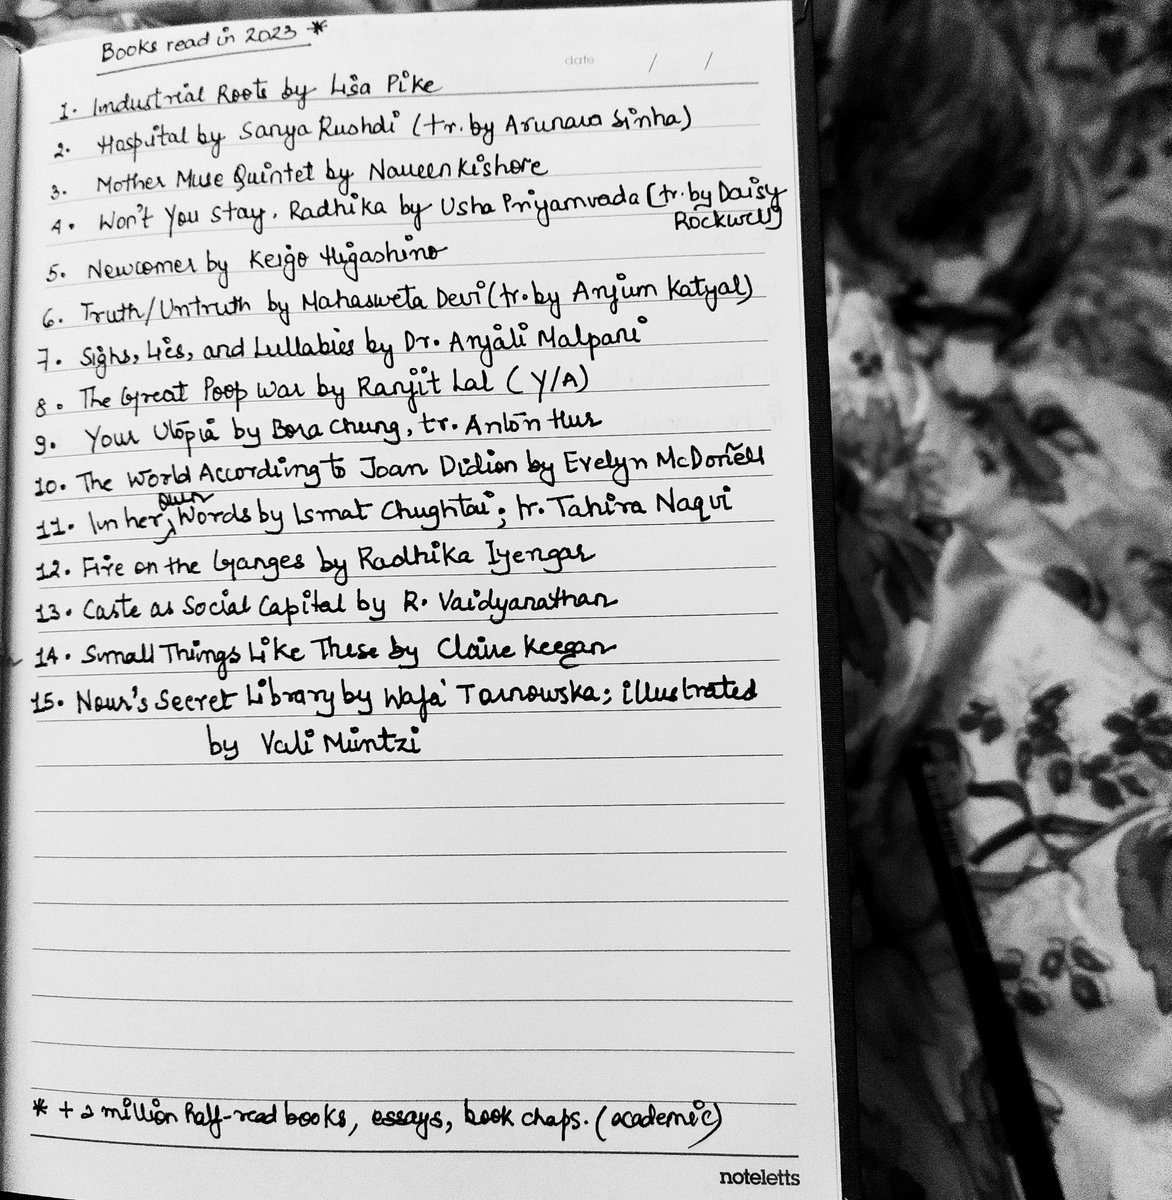 Books read in 2023 *
date / /
1. Industrial Roots by Lisa Pike
2. Hospital by Sanya Rushdi (tr. by Arunava Sinha)
3. Mother Muse Quintet by Naveen Kishore
4. Won't You Stay, Radhika by Usha Priyamvada (tr. by Daisy
Rockwell)
5. Newcomer by Keigo Higashino
6. Truth/Untruth by Mahasweta Devi (tr. by Anjum Katyal)
7. Sighs, Lies, and Lullabies by Dr. Anjali Malpani
8. The Great Poop War by Ranjit Lal (Y/A)
9. Your Utopia by Bora Chung, tr. Anton Hur
10. The World According to Joan Didion by Evelyn McDonell
11. In her own Words by Ismat Chughtai; tr. Tahira Naqvi
12. Fire on the Ganges by Radhika Iyengar
13. Caste as Social Capital by R. Vaidyanathan
14. Small Things Like These by Claire Keegan
15. Nour's Secret Library by Wafa' Tarnowska; illustrated
by Vali Mintzi
* + 2 million half-read books, essays, book chaps. (academic)
noteletts